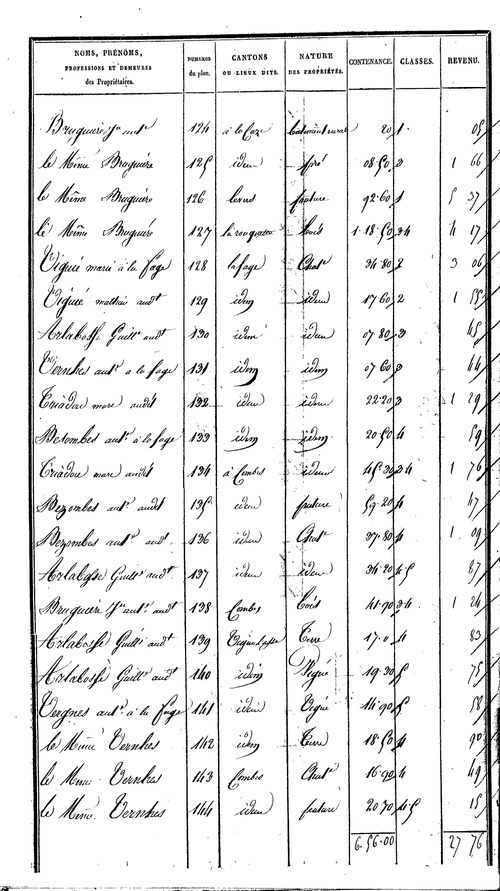 NOMS, PRÉNOMS, PROFESSIONS ET DEMEURES des Propriétaires. NUMEROS du plan. CANTONS OU LIEUX DITS. NATURE DES PROPRIÉTÉS. CONTENANCE. CLASSES. REVENU.
Bruguiere Jn antne 124 à la Caze batiment rural 20 1 05
le Même Bruguiere 125 idem pré 08.50 3 1 66
le Même Bruguiere 126 pature 92.60 1 5 37
le Même Bruguiere 127 la rouquette bois 1.18.50 3.4 4 17
Viguié marié à la fage 128 la fage Chatne 34.80 2 3 06
Viguié mathieu audt 129 idem idem 17.60 2 1 55
Arlabosse Guille audt 130 idem idem 07.80 3 45
Vernhes antne a la fage 131 idem idem 07.60 3 44
Triadou marc audit 132 idem idem 22.20 3 1 29
Besombes antne à la fage 133 idem idem 20.50 4 59
Triadou marc audit 134 à Combes idem 45.30 3.4 1 76
Bezombes antne audt 135 idem pature 59.20 4 47
Bezombes antne audt 136 idem Chatne 37.80 4 1 09
Arlabosse Guille audt 137 idem idem 34.20 4.5 87
Bruguiere Jn antne audt 138 Combes bois 41.90 3.4 1 24
Arlabosse Guille audt 139 Terre 17.0 4 83
Arlabosse Guille audt 140 idem Vigne 19.30 5 75
Vergnes antne à la fage 141 idem Vigne 14.90 5 58
le Même Vernhes 142 idem Terre 18.50 4 90
le Même Vernhes 143 Combes Chatne 16.90 4 49
le Même Vernhes 144 idem pature 20.70 4.5 15
6.56.00 27 76